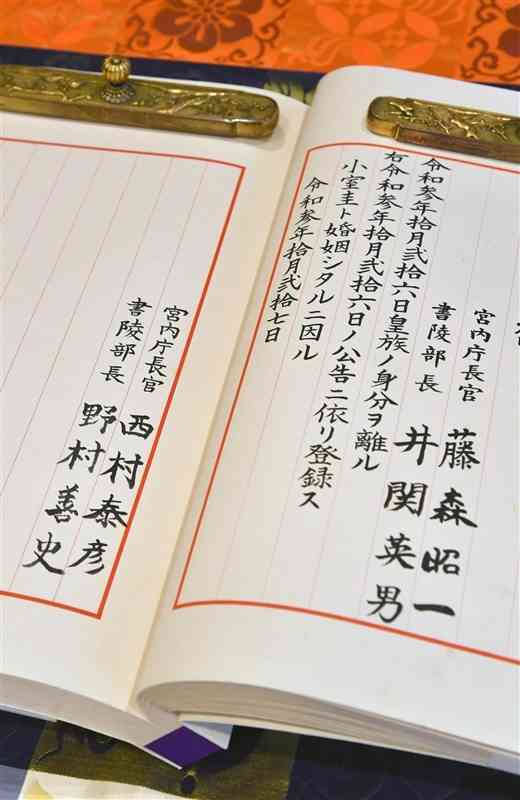 宮内庁長官 藤森昭一
書陵部長 井関英男
令和参年拾月弐拾六日皇族ノ身分ヲ離ル
右令和参年拾月弐拾六日ノ公告ニ依リ登録ス
小室圭ト婚姻シタルニ因ル
令和参年拾月弐拾七日
宮内庁長官 西村泰彦
書陵部長 野村善史